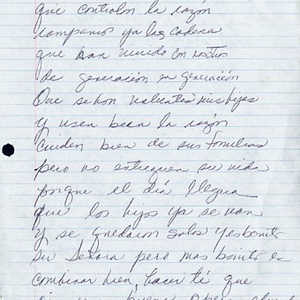 que controlan la razón
rompamos ya las cadena
que han venido con nostros
de generación en generación
Que sehan valientes mis hijas
Y usen bean la razón
Cuiden bien de sus familias
pero no entreguen su vida
porque el día llegua
que los hijos ya se van
Y se quedaron solos Yes bonito
ser Señora pero mas bonito es
combinar bien, hacer té que